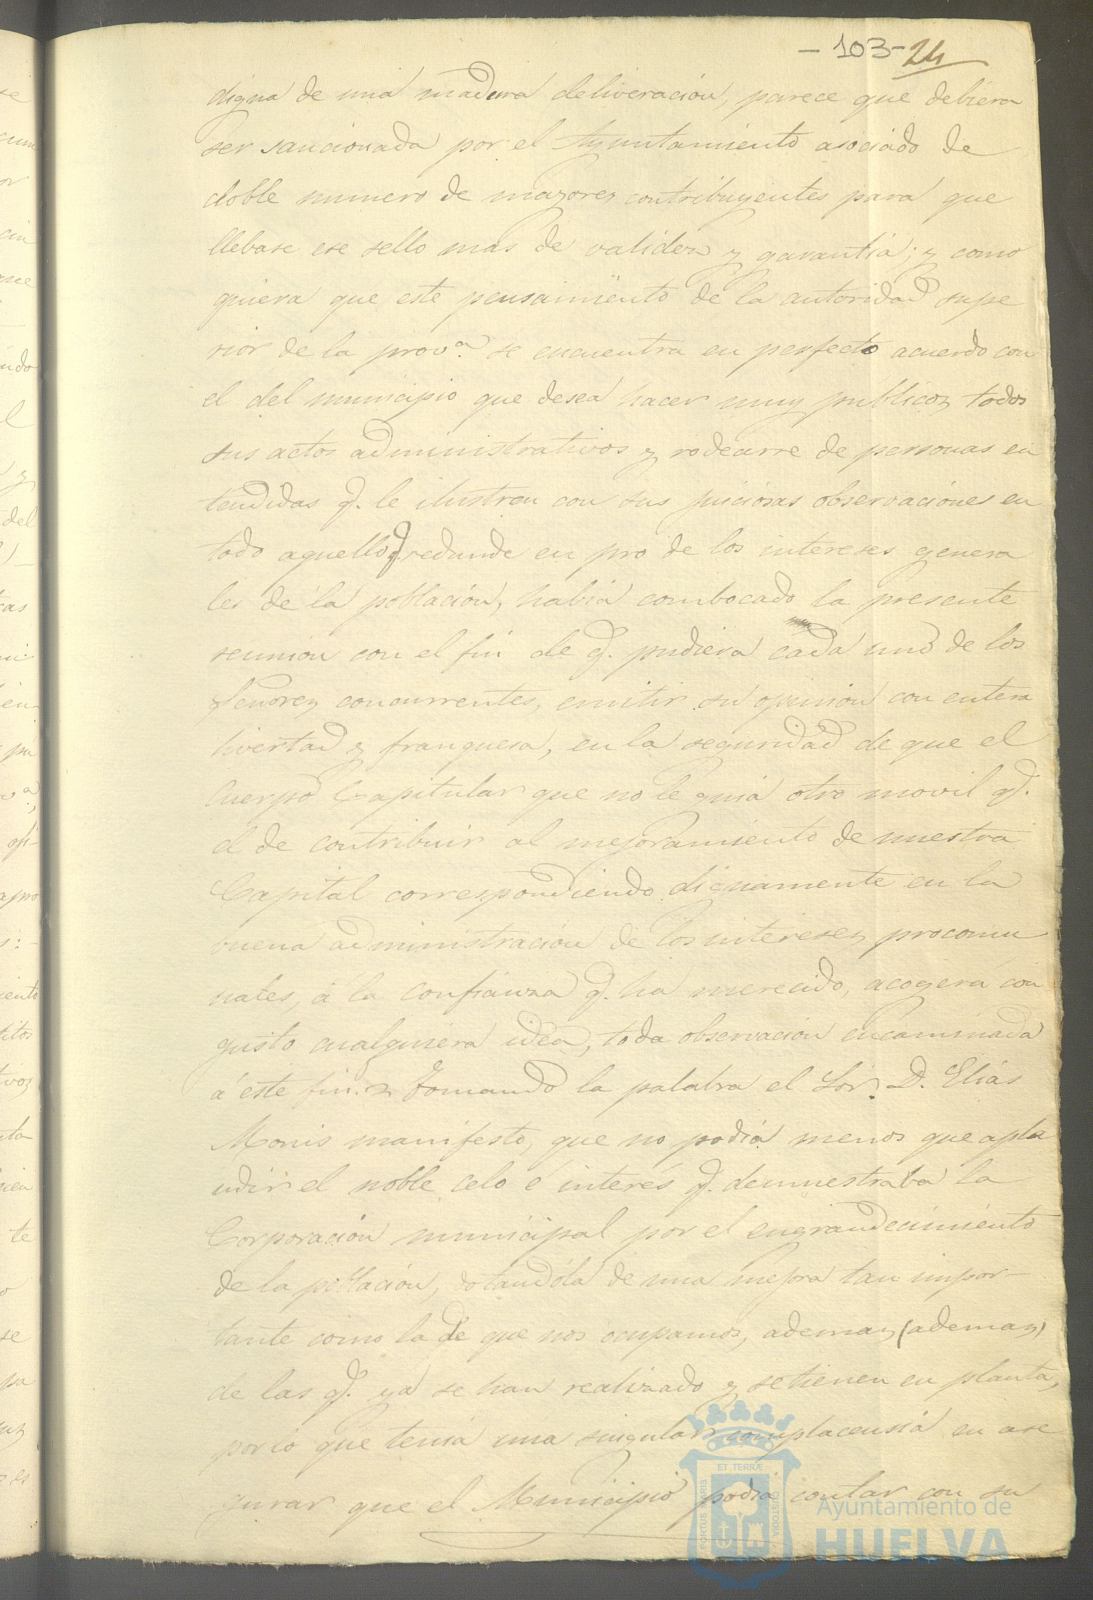 - 103 - 24
digna de una madura deliveración, parece que debiera
ser sancionada por el Ayuntamiento asociado de
doble numero de mayores contribuyentes para que
llebase ese sello mas de validez y garantia; y como
quiera que este pensamiento de la autoridad supe
rior de la provª. se encuentra en perfecto acuerdo con
el del municipio que desea hacer muy publicos todos
sus actos administrativos y rodearse de personas en
tendidas q. le ilustren con sus juiciosas observaciones en
todo aquello q. redunde en pro de los intereses genera
les de la población, habia combocado la presente
reunion con el fin de q. pudiera cada uno de los
Señores concurrentes, emitir su opinion con entera
livertad y franquesa, en la seguridad de que el
Cuerpo Capitular que no le guia otro movil q.
el de contribuir al mejoramiento de nuestra
Capital correspondiendo dignamente en la
buena administración de los intereses procomu
nales, á la confianza q. ha merecido, acogerá con
gusto cualquiera idea, toda observacion encaminada
á este fin. y tomando la palabra el Sor. D. Elias
Monis manifesto, que no podia menos que apla
udir el noble celo é interés q. demuestraba la
Corporación municipal por el engrandecimiento
de la población, dotandola de una mejora tan impor-
tante como la de que nos ocupamos, ademas (ademas)
de las q. ya se han realizado y se tienen en planta,
por lo que tenia una singular complacensia en ase
gurar que el Municipio podia contar con su
PORTUS MARIS ET TERRÆ CUSTODIA
Ayuntamiento de
HUELVA